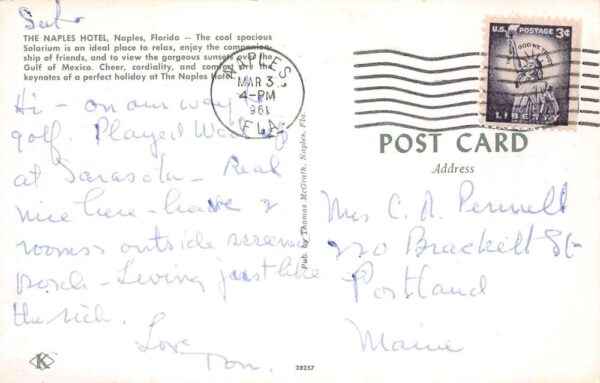 Sat.
THE NAPLES HOTEL, Naples, Florida — The cool spacious
Solarium is an ideal place to relax, enjoy the companion-
ship of friends, and to view the gorgeous sunsets over the
Gulf of Mexico. Cheer, cordiality, and comfort are the
keynotes of a perfect holiday at The Naples Hotel.
Hi - on our way to
golf. Played Wed
at Sarasota - Real
nice here - have 2
rooms & outside screened
porch - Living just like
the rich.
Love
K
28257
Pub. by Thomas McGrath, Naples, Fla.
NAPLES,
MAR 3
4-PM
1961
FLA.
U.S. POSTAGE 3¢
IN GOD WE TRUST
LIBERTY
POST CARD
Address
Mrs C. A. Pennell
220 Brackett St
Portland
Maine